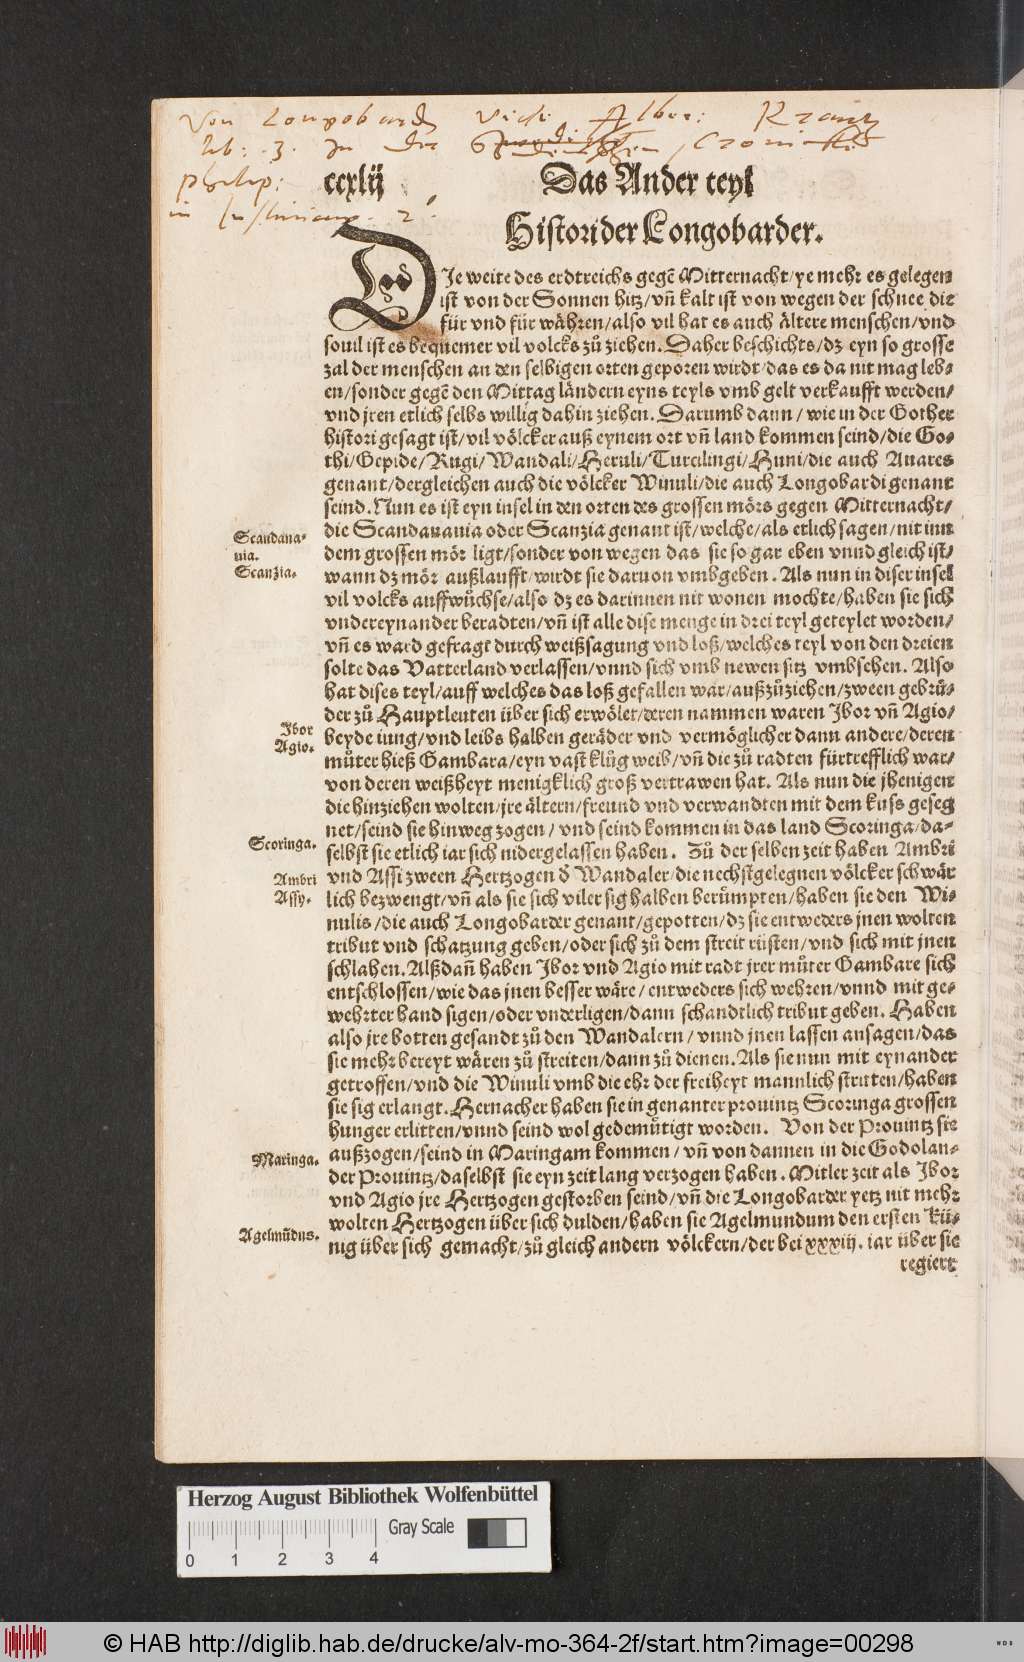 Von Longobarden Vide Alber: Krantz
lib: 3. In der Cronick
philip:
in 2°.
ccxlij Das Ander teyl
Histori der Longobarder.
DIe weite des erdtreichs gegē Mitternacht/ye mehr es gelegen
ist von der Sonnen hitz/vñ kalt ist von wegen der schnee die
für vnd für währen/also vil hat es auch ältere menschen/vnd
souil ist es bequemer vil volcks zů ziehen. Daher beschichts/dz eyn so grosse
zal der menschen an den selbigen orten geporen wirdt/das es da nit mag leb-
en/sonder gegē den Mittag ländern eyns teyls vmb gelt verkaufft werden/
vnd jren etlich selbs willig dahin ziehen. Darumb dann/wie in der Gother
histori gesagt ist/vil völcker auß eynem ort vñ land kommen seind/die Go-
thi/Gepide/Rugi/Wandali/Heruli/Turcilingi/Huni/die auch Auares
genant/dergleichen auch die völcker Winuli/die auch Longobardi genant
seind. Nun es ist eyn insel in den orten des grossen mörs gegen Mitternacht/
Scandana-
uia.
Scanzia.
die Scandanauia oder Scanzia genant ist/welche/als etlich sagen/nit inn
dem grossen mör ligt/sonder von wegen das sie so gar eben vnnd gleich ist/
wann dz mör außlaufft/wirdt sie daruon vmbgeben. Als nun in diser insel
vil volcks auffwůchse/also dz es darinnen nit wonen mochte/haben sie sich
vndereynander beradten/vñ ist alle dise menge in drei teyl geteylet worden/
vñ es ward gefragt durch weißsagung vnd loß/welches teyl von den dreien
solte das Vatterland verlassen/vnnd sich vmb newen sitz vmbsehen. Also
hat dises teyl/auff welches das loß gefallen war/außzůziehen/zween gebrů-
Ibor
Agio.
der zů Hauptleuten über sich erwölet/deren nammen waren Ibor vñ Agio/
beyde iung/vnd leibs halben geräder vnd vermöglicher dann andere/deren
můter hieß Gambara/eyn vast klůg weib/vñ die zů radten fürtrefflich war/
von deren weißheyt menigklich groß vertrawen hat. Als nun die jhenigen
die hinziehen wolten/jre ältern/freund vnd verwandten mit dem kuss geseg
net/seind sie hinweg zogen/vnd seind kommen in das land Scoringa/da-
Scoringa.
selbst sie etlich iar sich nidergelassen haben. Zů der selben zeit haben Ambri
Ambri
Assy.
vnd Assi zween Hertzogen d̄ Wandaler/die nechstgelegnen völcker schwär
lich bezwengt/vñ als sie sich viler sig halben berůmpten/haben sie den Wi-
nulis/die auch Longobarder genant/gepotten/dz sie entweders jnen wolten
tribut vnd schatzung geben/oder sich zů dem streit rüsten/vnd sich mit jnen
schlahen. Alßdañ haben Ibor vnd Agio mit radt jrer můter Gambare sich
entschlossen/wie das jnen besser wäre/entweders sich wehren/vnnd mit ge-
wehrter hand sigen/oder vnderligen/dann schandtlich tribut geben. Haben
also jre botten gesandt zů den Wandalern/vnnd jnen lassen ansagen/das
sie mehr bereyt wären zů streiten/dann zů dienen. Als sie nun mit eynander
getroffen/vnd die Winuli vmb die ehr der freiheyt mannlich stritten/haben
sie sig erlangt. Hernacher haben sie in genanter prouintz Scoringa grossen
hunger erlitten/vnnd seind wol gedemůtigt worden. Von der Prouintz sie
Maringa.
außzogen/seind in Maringam kommen/vñ von dannen in die Godolan-
der Prouintz/daselbst sie eyn zeit lang verzogen haben. Mitler zeit als Ibor
vnd Agio jre Hertzogen gestorben seind/vñ die Longobarder yetz nit mehr
Agelmūdus.
wolten Hertzogen über sich dulden/haben sie Agelmundum den ersten Kü-
nig über sich gemacht/zů gleich andern völckern/der bei xxxiij. iar über sie
regiert
Herzog August Bibliothek Wolfenbüttel
Gray Scale
0 1 2 3 4
© HAB http://diglib.hab.de/drucke/alv-mo-364-2f/start.htm?image=00298